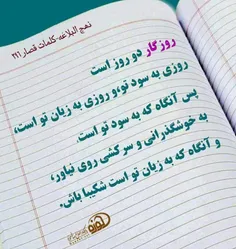 نهج البلاغه-کلمات قصار ۳۹۶
روزگار دو روز است
روزی به سود تو،و روزی به زیان تو است،
پس آنگاه که به سود تو است
به خوشگذرانی و سرکشی روی نیاور،
و آنگاه که به زیان تو است شکیبا باش.